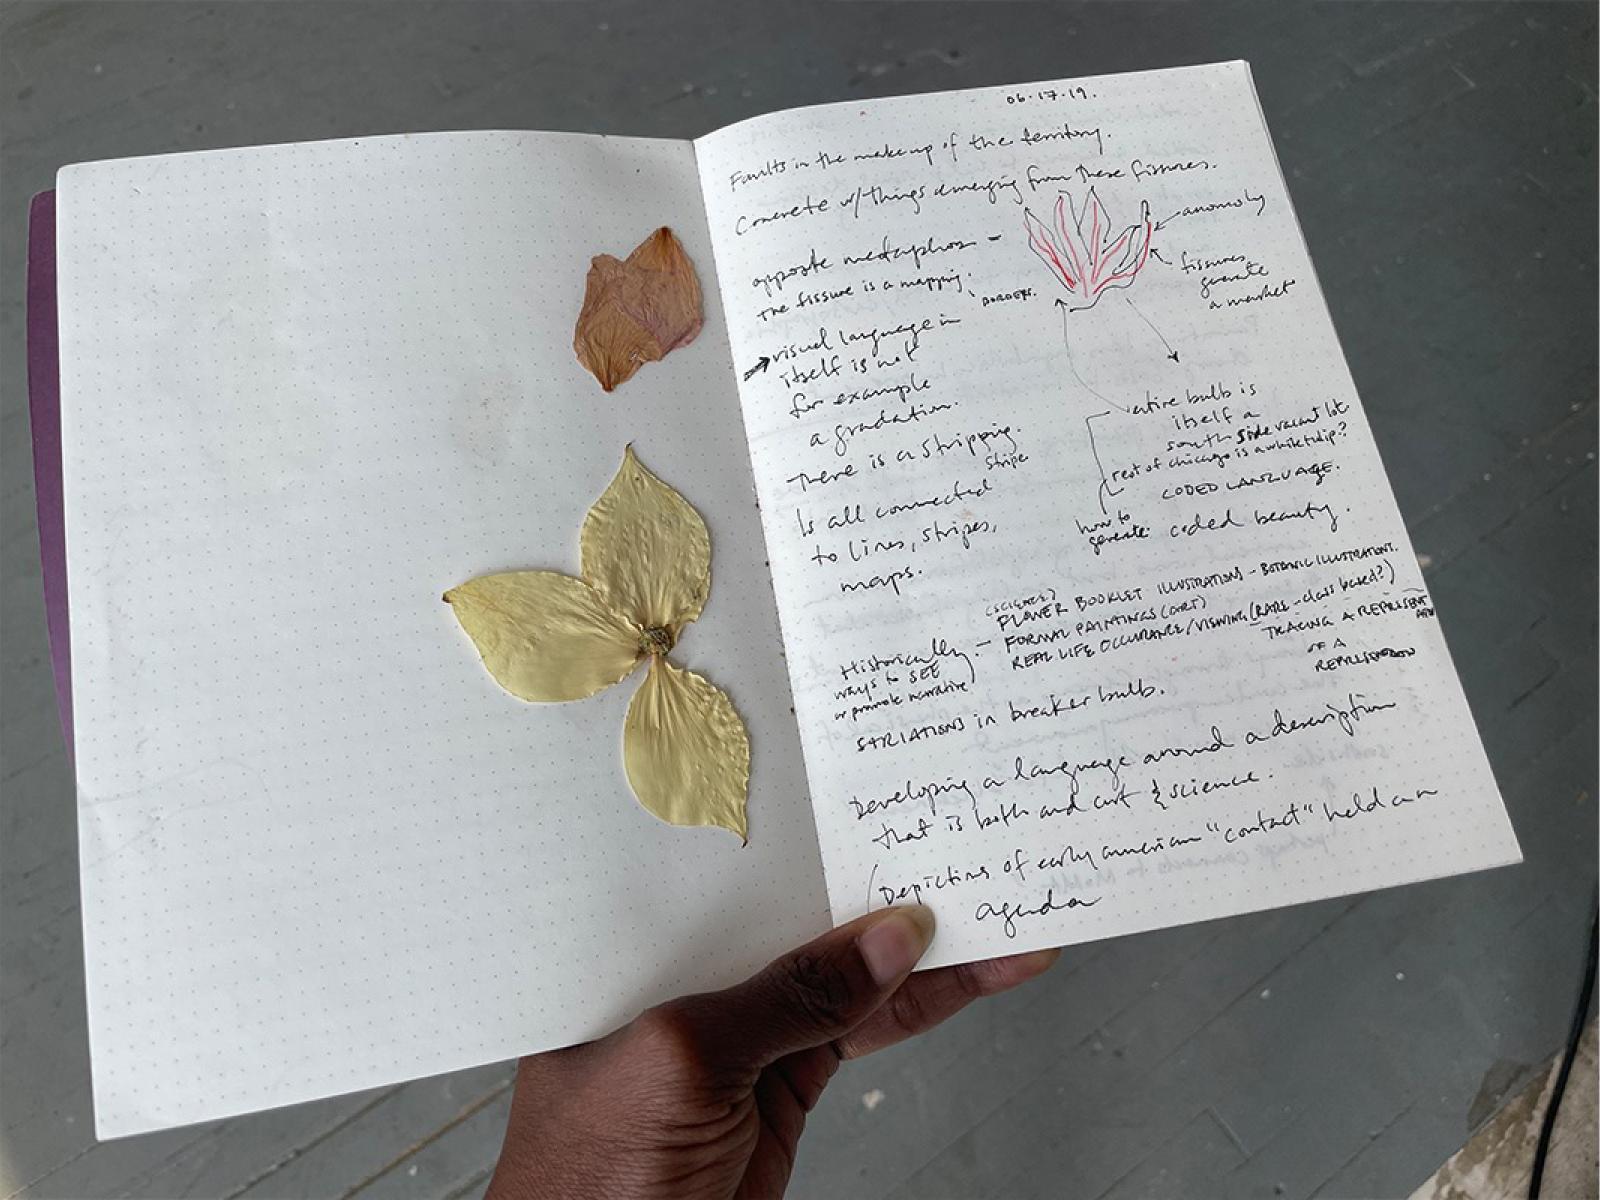 06.17.19.
Faults in the makeup of the territory.
Concrete w/things emerging from these fissures.
opposite metaphor –
the fissure is a mapping.
BORDERS.
anomoly
fissures
generate
a market
→ visual language in
itself is not
for example
a gradation.
There is a stripping.
stripe
Is all connected
to lines, stripes,
maps.
entire bulb is
itself a
south side vacant lot
rest of chicago is a white tulip?
CODED LANGUAGE.
how to
generate coded beauty.
(SCIENCE)
FLOWER BOOKLET ILLUSTRATIONS – BOTANIC ILLUSTRATION.
Historically – FORMAL PAINTINGS (ART)
ways to SEE
or promote narrative
REAL LIFE OCCURANCE/VIEWING (RARE – class based?)
TRACING A REPRESENTATION
OF A
REPRESENTATION
STRIATIONS in breaker bulb.
Developing a language around a description
that is both and art & science.
(Depictions of early american "contact" held an
agenda